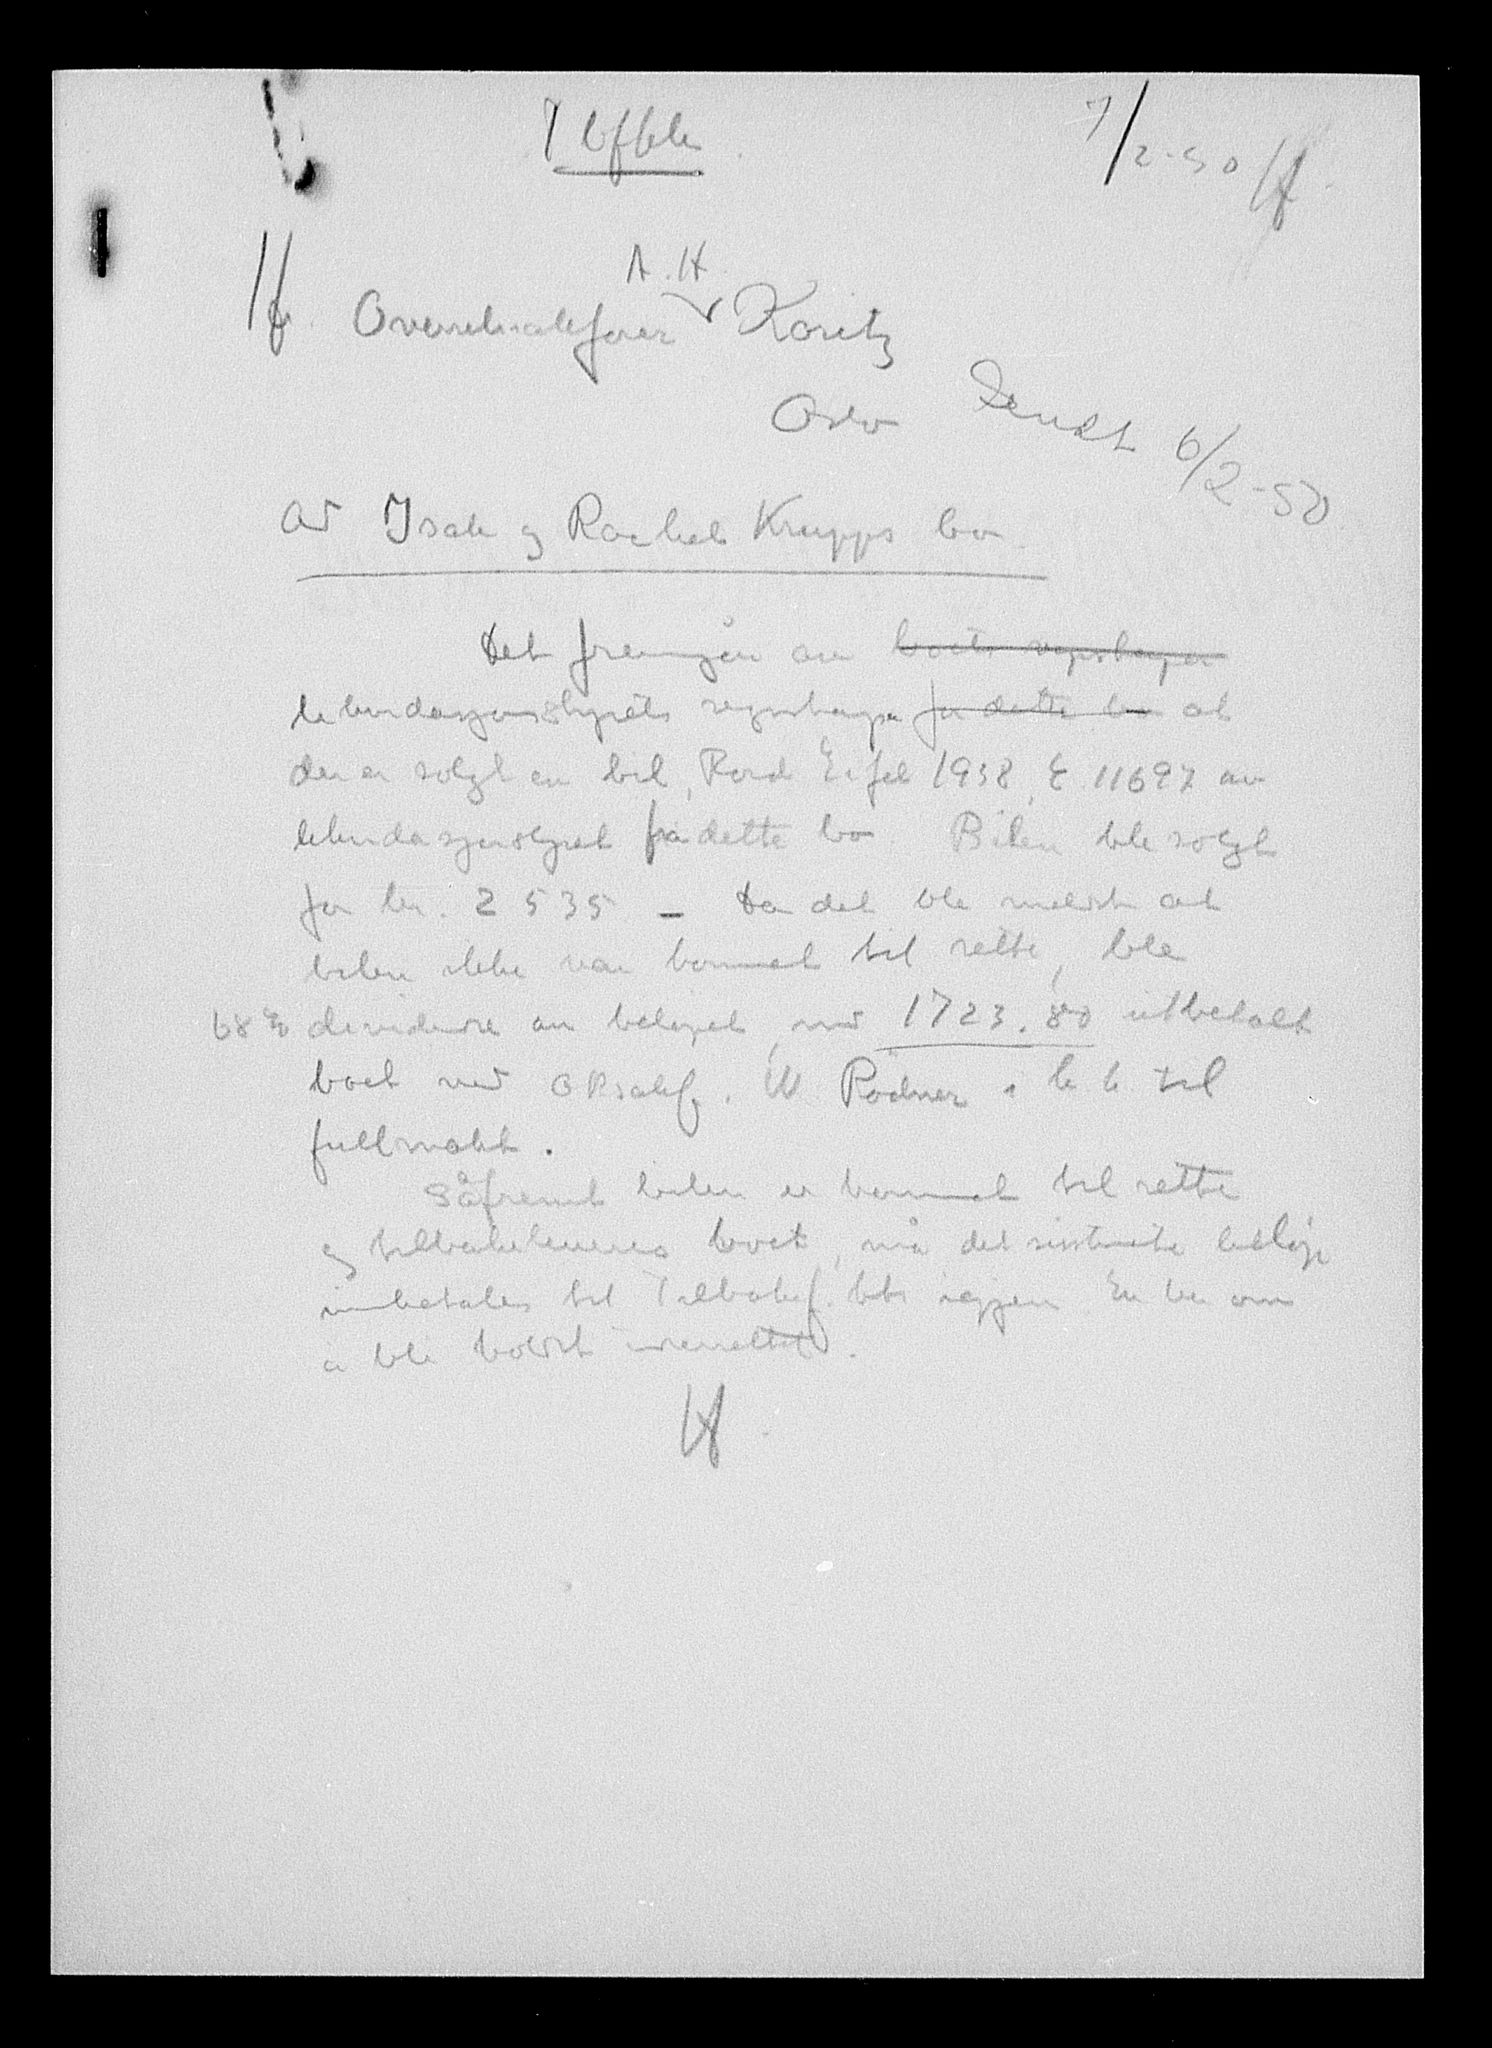 7/2-50
A.H.
Hr. Overrettssakfører Koritz
Oslo
Sendt 6/2-50
Ad Isak og Rachel Krupps bo
Det fremgår av boets regnskaper
likvidasjonsstyrets regnskaper for dette bo at
der er solgt en bil, Ford Eifel 1938, E. 11697 av
likvidasjonsstyret fra dette bo Bilen ble solgt
for kr. 2535 – Da det ble meldt at
bilen ikke var kommet til rette, ble
68% dividende av beløpet, med 1723.80 utbetalt
boet ved ORsakf. W Rødner i h.h. til
fullmakt.
Såfremt bilen er kommet til rette
og tilbakeleveres boet, må det sistnevnte beløp
innbetales til Tilbakef. ktr igjen En ber om
å bli holdt underrettet.